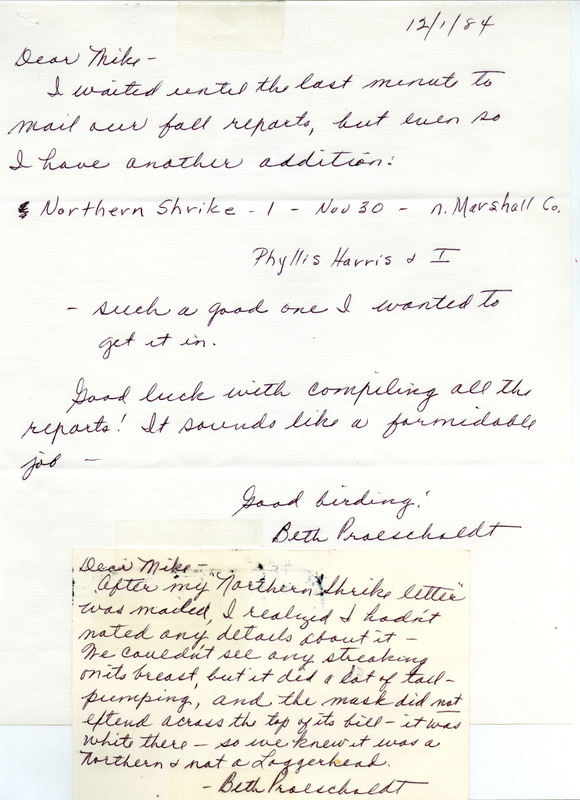 12/1/84
Dear Mike-
I waited until the last minute to
mail our fall reports, but even so
I have another addition:
Northern Shrike - 1 - Nov 30 - n. Marshall Co.
Phyllis Harris & I
- such a good one I wanted to
get it in.
Good luck with compiling all the
reports! It sounds like a formidable
job -
Good birding!
Beth Proescholdt
Dear Mike-
After my "Northern Shrike letter"
was mailed, I realized I hadn't
noted any details about it -
We couldn't see any streaking
on its breast, but it did a lot of tail-
pumping, and the mask did not
extend across the top of its bill - it was
white there - so we knew it was a
Northern & not a Loggerhead.
- Beth Proescholdt